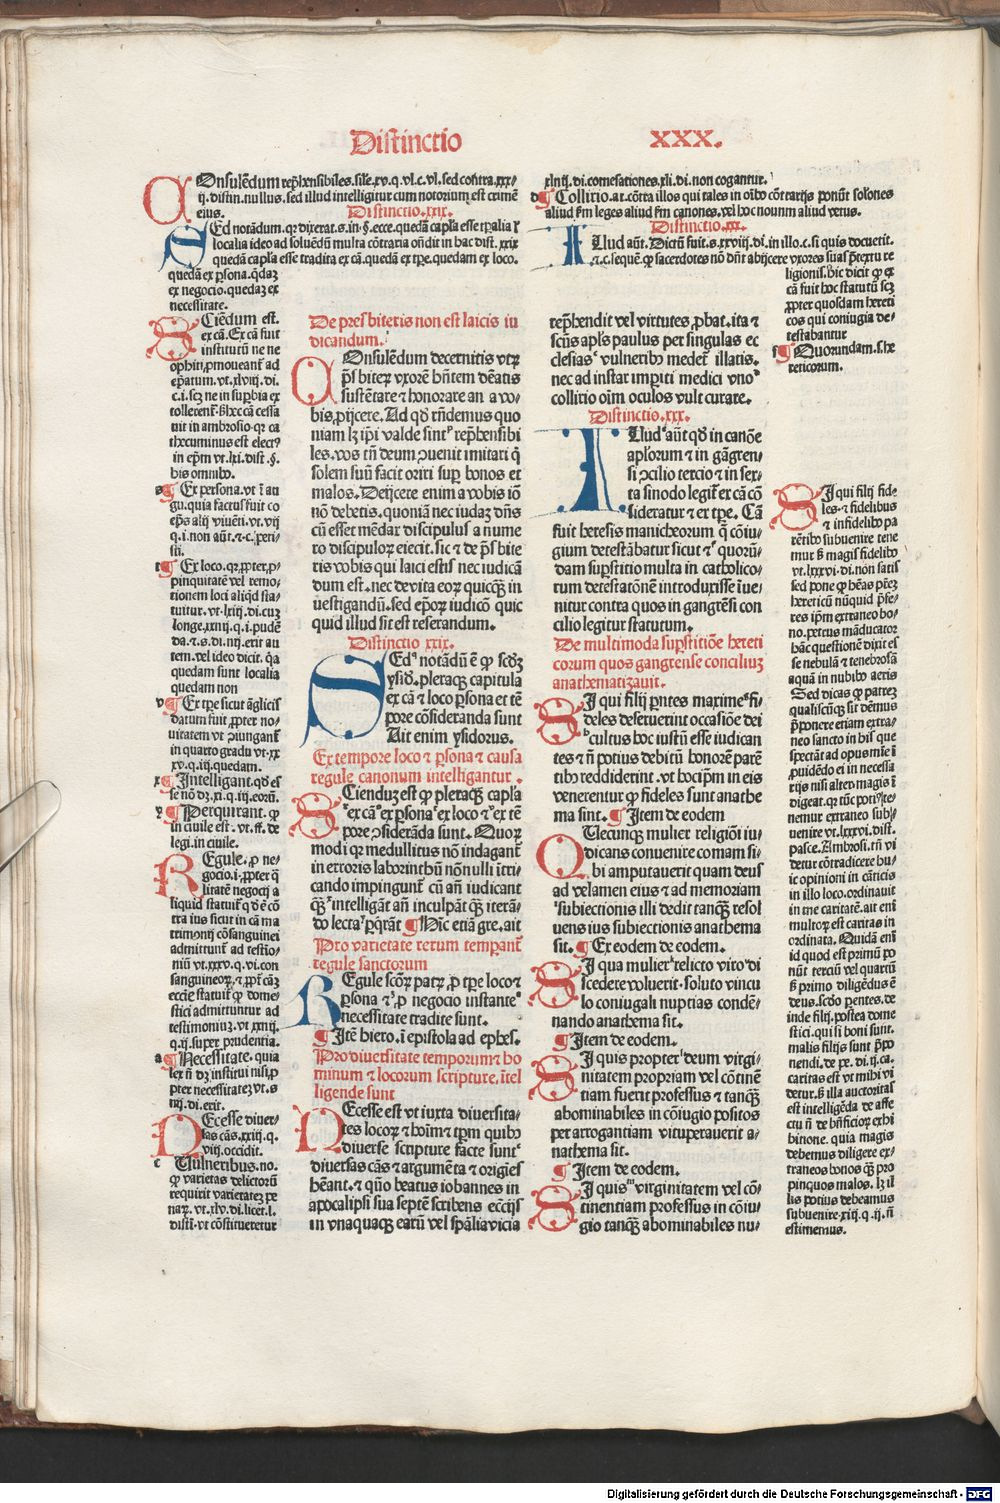 Distinctio XXX.
COnsulēdum rep̄hensibiles. sil'e. xv. q. vl. c. vl. sed contra. xxx-
ij. distin. nullus. sed illud intelligitur cum notorium est crimē
eius.
Distinctio. xxix.
SEd notādum. qꝛ dixerat. s. in. §. ecce. quedā capl'a esse tp̄alia ⁊
localia ideo ad soluēdū multa cōtraria oñdit in hac dist. xxix
quedā capl'a esse tradita ex cā. quedā ex tp̄e. quedam ex loco.
quedā ex p̄sona. q̄daz
ex negocio. quedaz ex
necessitate.
SCiēdum est.
ex cā. Ex cā fuit
institutū ne ne
ophiti ꝓmoueant' ad
ep̄atum. vt. xlviij. di.
c. i. scz ne in supbia ex
tollerent'. s' hec cā cessa
uit in ambrosio qꝛ ca
thecuminus est elect⁹
in ep̄m vt. lxi. dist. §.
his omnibꝰ.
s ¶ Ex persona. vt ī au
gu. quia factus fuit co
ep̄s alij viuēti. vt. vij
q. i. non aūt. ⁊. c. peri-
sti.
t ¶ Ex loco. qꝛ ꝓpter ꝓ-
pinquitatē vel remo-
tionem loci aliqd sta-
tuitur. vt. lxiij. di. cuz
longe. xxiij. q. i. pudē
da. ⁊. s. di. iiij. erit au
tem. vel ideo dicit. q̄a
quedam sunt localia
quedam non
v ¶ Ex tp̄e sicut āglicis
datum fuit ꝓpter no-
uitatem vt ꝯiungant'
in quarto gradu vt. xx
xv. q. iij. quedam.
x ¶ Intelligant. qd es
se nō dz. xi. q. iij. eorū.
y ¶ Perquirant. ꝙ
in ciuile est. vt. ff. de
legi. in ciuile.
REgule. ꝓ ne-
gocio. i. ꝓpter q̄
litatē negocij a
liquid statuit' q̄d ē cō
tra ius sicut in cā ma
trimonij cōsanguinei
admittunt' ad testio-
niū vt. xxxv. q. vi. con
sanguineoꝝ. ⁊ ꝓpt' cāz
eccl'ie statuit' ꝙ dome-
stici admittuntur ad
testimoniuꝫ. vt xxiij.
q. ij. super prudentia.
a ¶ Necessitate. quia
lex ñ dꝫ institui nisi ꝓ
pter necessitateꝫ vt. s
iiij. di. erit.
NEcesse diuer-
sas cās. xxiij. q.
viij. occidit.
c Uulneribus. no.
ꝙ varietas delictorū
requirit varietateꝫ pe
naꝝ. vt. xlv. di. licet. l.
disti. vt cōstitueretur
De presbiteris non est laicis iu
dicandum.
COnsulēdum decernitis vtꝝ
p̄sbiteꝝ vxorē hñtem dēatis
sustētare ⁊ honorare an a vo-
bis ꝓijcere. Ad qd rñdemus quo
niam lꝫ ip̄i valde sint' rep̄hensibi
les. vos tñ deum ꝯuenit imitari q̄
solem suū facit oriri sup bonos et
malos. Deijcere enim a vobis iō
nō debetis. quoniā nec iudaꝫ dñs
cū esset mēdar discipulus a nume
ro discipuloꝝ eiecit. sic ⁊ de p̄sbite
ris vobis qui laici estis nec iudicā
dum est. nec de vita eoꝝ quicq̄ in
uestigandū. sed ep̄oꝝ iudicō quic
quid illud sit est reserandum.
Distinctio xxix.
SEd notādū ē ꝙ scdꝫ
ysid. pleraqꝫ capitula
ex cā ⁊ loco p̄sona et tē
pore cōsideranda sunt
Ait enim ysidorus.
Ex tempore loco ⁊ p̄sona ⁊ causa
regule canonum intelligantur.
SCienduꝫ est ꝙ pleraqꝫ capl'a
ex cā ex p̄sona ex loco ⁊ ex tē
pore ꝯsiderāda sunt. Quoꝝ
modi qꝛ medullitus nō indagant'
in erroris laborinthū nōnulli ītri
cando impingunt' cū añ iudicant
qꝫ intelligāt añ inculpāt qꝫ iterā-
do lecta ꝑq̄rāt ¶ Hic etiā gre. ait
Pro varietate rerum tempant'
regule sanctorum
REgule scōꝝ patꝝ ꝓ tp̄e loco ⁊
p̄sona ⁊ ꝓ negocio instante
necessitate tradite sunt.
¶ Itē hiero. ī epistola ad ephes.
Pro diuersitate temporum ⁊ ho
minum ⁊ locorum scripture. ītel
ligende sunt
NEcesse est vt iuxta diuersita-
tes locoꝝ ⁊ hoīm ⁊ tp̄m quibꝰ
diuerse scripture facte sunt
diuersas cās ⁊ argumēta ⁊ origīes
hēant. ⁊ quō beatus iohannes in
apocalipsi sua septē scribens ecc'ijs
in vnaquaqꝫ earū vel sp̄alia vicia
xlnij. di. comesationes. xli. di. non cogantur.
d ¶ Collirio. ar. cōtra illos qui tales in oībꝰ cōtrarijs ponūt solones
aliud s'm leges aliud s'm canones. vel hoc nouum aliud vetus.
Distinctio. xxx.
ILlud aūt. Dictū fuit. s. xxviij. di. in illo. c. si quis docuerit.
⁊. c. sequē. ꝙ sacerdotes nō dñt abijcere vxores suas p̄textu re
ligionis. hic dicit ꝙ ex
cā fuit hoc statutū scꝫ
ꝓpter quosdam hereti
cos qui coniugia de-
testabantur
f ¶ Quorundam. s. he
reticorum.
rep̄hendit vel virtutes ꝓbat. ita ⁊
scūs apl's paulus per singulas ec
clesias vulneribꝰ medet' illatis.
nec ad instar imꝑiti medici vno
collirio oīm oculos vult curare.
Distinctio. xxx.
ILlud aūt qd in canōe
apl'orum ⁊ in gāgren-
si ꝯcilio tercio ⁊ in sex-
ta sinodo legit' ex cā cō
sideratur ⁊ ex tp̄e. Cā
fuit heresis manicheorum q̄ cōiu-
gium detestābatur sicut ⁊ quorū-
dam sup̄stitio multa in catholico-
rum detestatōnē introduxisse īue-
nitur contra quos in gangrēsi con
cilio legitur statutum.
De multimoda sup̄stitiōe hereti
corum quos gangrense conciliuꝫ
anathematizauit.
SI qui filij p̄ntes maxime fi-
deles deseruerint occasiōe dei
cultus hoc iustū esse iudican
tes ⁊ ñ potius debitū honorē parē
tibꝰ reddiderint. vt hoc ip̄m in eis
venerentur ꝙ fideles sunt anathe
ma sint. ¶ Item de eodem
QUecunqꝫ mulier religiōi iu-
dicans conuenire comam si-
bi amputauerit quam deus
ad velamen eius ⁊ ad memoriam
subiectionis illi dedit tanqꝫ resol
uens ius subiectionis anathema
sit. ¶ Ex eodem de eodem.
SI qua mulier relicto viro di
scedere voluerit soluto vincu
lo coniugali nuptias condē-
nando anathema sit.
¶ Item de eodem.
SI quis propter deum virgi-
nitatem propriam vel cōtinē
tiam fuerit professus ⁊ tanqꝫ
abominabiles in cōiugio positos
per arrogantiam vituperauerit a-
nathema sit.
¶ Item de eodem.
SI quis virginitatem vel cō-
tinentiam professus in cōiu-
gio tanqꝫ abominabiles nu-
SI qui filij fide-
les. ⁊ fidelibus
⁊ infidelibꝰ pa
rētibꝰ subuenire tene
mur s' magis fidelibꝰ
vt. lxxxvi. di. non satis
sed pone ꝙ hēas p̄rēꝫ
hereticū nūquid p̄fe-
res ip̄m extraneo bo-
no. petrus māducator
hāc questionē dixit es
se nebulā ⁊ tenebrosā
aquā in nubibꝰ aeris
Sed dicas ꝙ patreꝫ
qualiscūqꝫ sit dēmus
p̄ponere etiam extra-
neo sancto in his que
spectāt ad opus mīe ī
ꝓuidēdo ei in necessa
rijs nisi alter magis ī
digeat. qꝛ tūc poti⁹ te-
nemur extraneo sub-
uenire vt. lxxxvi. dist.
pasce. Ambrosi. tñ vi
detur cōtradicere hu-
ic opinioni in cāticis
in illo loco. ordinauit
in me caritatē. ait eni
multoꝝ est caritas in
ordinata. Quidā enī
id quod est primū po
nūt terciū vel quartū
s' primo diligēdus ē
deus. scdo pentes. de
inde filij. postea dome
stici. qui si boni sunt.
malis filijs sunt p̄po
nendi. de pe. di. ij. ca.
caritas est vt mihi vi
detur. s' illa auctoritas
est intelligēda de affe
ctu ñ de bñficioꝝ exhi
bitione. quia magis
debemus diligere ex-
traneos bonos qꝫ pro
pinquos malos. lꝫ il
lis potius debeamus
subuenire. xiiij. q. ij. ñ
estimemus.
Digitalisierung gefördert durch die Deutsche Forschungsgemeinschaft - DFG